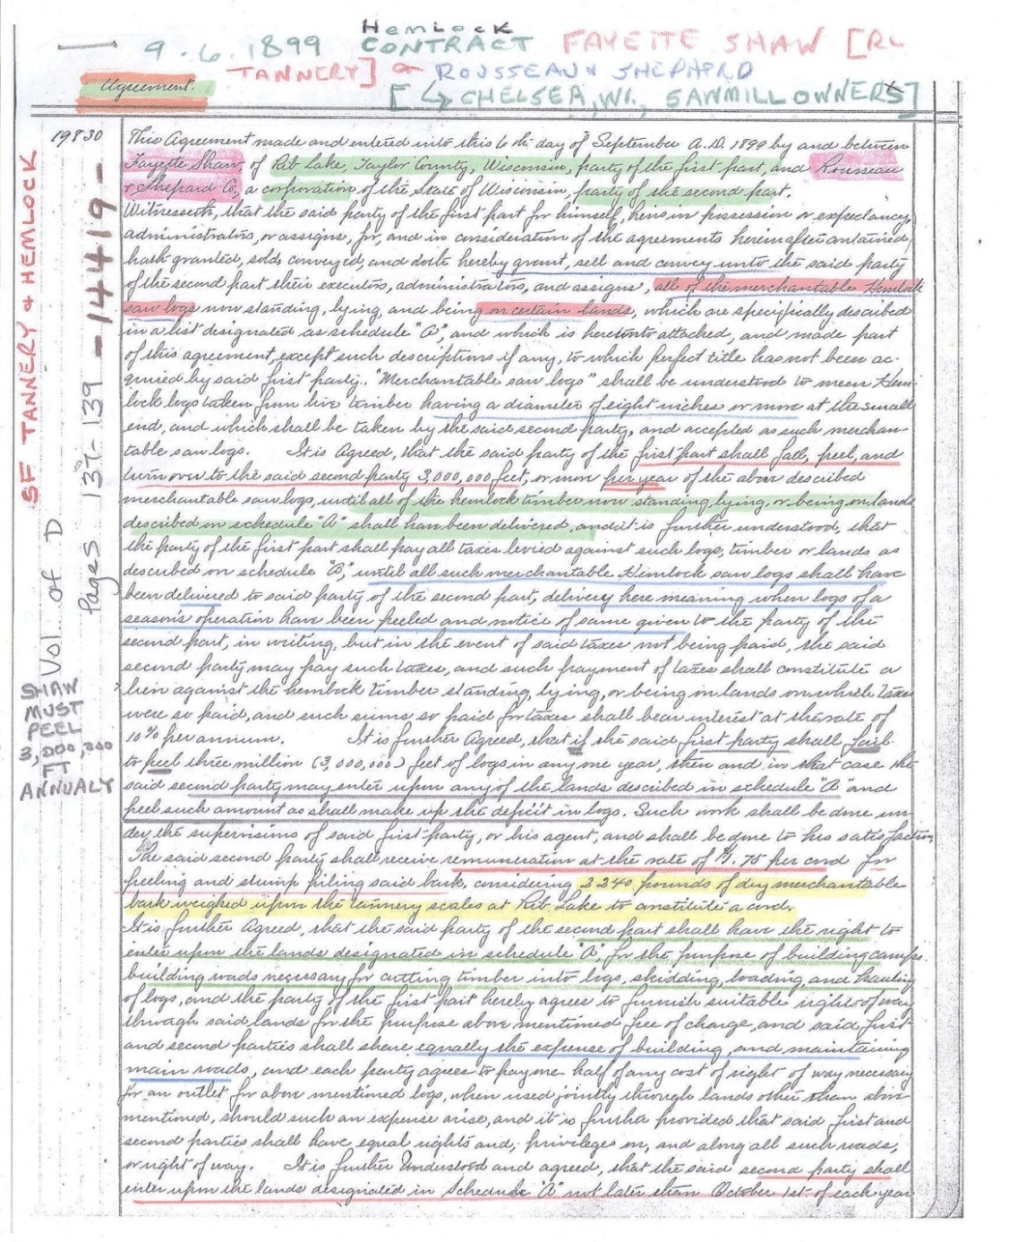 HEMLOCK
9.6.1899 CONTRACT FAYETTE SHAW [RL
TANNERY] & ROUSSEAU & SHEPHERD
[↳ CHELSEA, WI., SAWMILL OWNERS]
Agreement.
19830
SF TANNERY & HEMLOCK
Vol of D
Pages 137-139 -14419-
SHAW
MUST
PEEL
3,000,000
FT
ANNUALY
This Agreement made and entered into this 6th day of September A.D. 1899 by and between
Fayette Shaw, of Rib Lake, Taylor County, Wisconsin, party of the first part, and Rousseau
& Shepard Co, a corporation of the State of Wisconsin, party of the second part.
Witnesseth, that the said party of the first part for himself, heirs in possession or expectancy,
administrators, or assigns, for, and in consideration of the agreements hereinafter contained,
hath granted, sold, conveyed, and doth hereby grant, sell and convey unto the said party
of the second part their executors, administrators, and assigns, all of the merchantable Hemlock
saw logs now standing, lying, and being on certain lands, which are specifically described
in a list designated as schedule "A", and which is hereunto attached, and made part
of this agreement, except such descriptions if any, to which perfect title has not been ac-
quired by said first party. "Merchantable saw logs" shall be understood to mean Hem-
lock logs taken from live timber having a diameter of eight inches or more at the small
end, and which shall be taken by the said second party, and accepted as such merchan-
table saw logs. It is Agreed, that the said party of the first part shall fall, peel, and
turn over to the said second party 3,000,000 feet, or more per year of the above described
merchantable saw logs, until all of the hemlock timber now standing, lying, or being on lands
described in schedule "A" shall have been delivered, and it is further understood, that
the party of the first part shall pay all taxes levied against such logs, timber or lands as
described on schedule "A", until all such merchantable Hemlock saw logs shall have
been delivered to said party of the second part, delivery here meaning when logs of a
season's operation have been peeled and notice of same given to the party of the
second part, in writing, but in the event of said taxes not being paid, the said
second party may pay such taxes, and such payment of taxes shall constitute a
lien against the hemlock timber standing, lying, or being on lands on which taxes
were so paid, and such sums so paid for taxes shall bear interest at the rate of
10% per annum. It is further Agreed, that if the said first party shall fail
to peel three million (3,000,000) feet of logs in any one year, then and in that case the
said second party may enter upon any of the lands described in schedule "A" and
peel such amount as shall make up the deficit in logs. Such work shall be done un-
der the supervisions of said first party, or his agent, and shall be done to his satisfaction,
The said second party shall receive remuneration at the rate of $1.75 per cord for
peeling and stump piling said bark, considering 2240 pounds of dry merchantable
bark weighed upon the tannery scales at Rib Lake to constitute a cord.
It is further Agreed, that the said party of the second part shall have the right to
enter upon the lands designated in schedule "A", for the purpose of building camps,
building roads necessary for cutting timber into logs, skidding, loading, and hauling
of logs, and the party of the first part hereby agrees to furnish suitable rights of way
through said lands for the purpose above mentioned free of charge, and said first
and second parties shall share equally the expense of building, and maintaining
main roads, and each party agrees to pay one half of any cost of right of way necessary
for an outlet for above mentioned logs, when used jointly through lands other than above
mentioned, should such an expense arise, and it is further provided that said first and
second parties shall have equal rights and, privileges on, and along all such roads,
or right of way. It is further Understood and agreed, that the said second party shall
enter upon the lands designated in Schedule "A" not later than October 1st. of each year